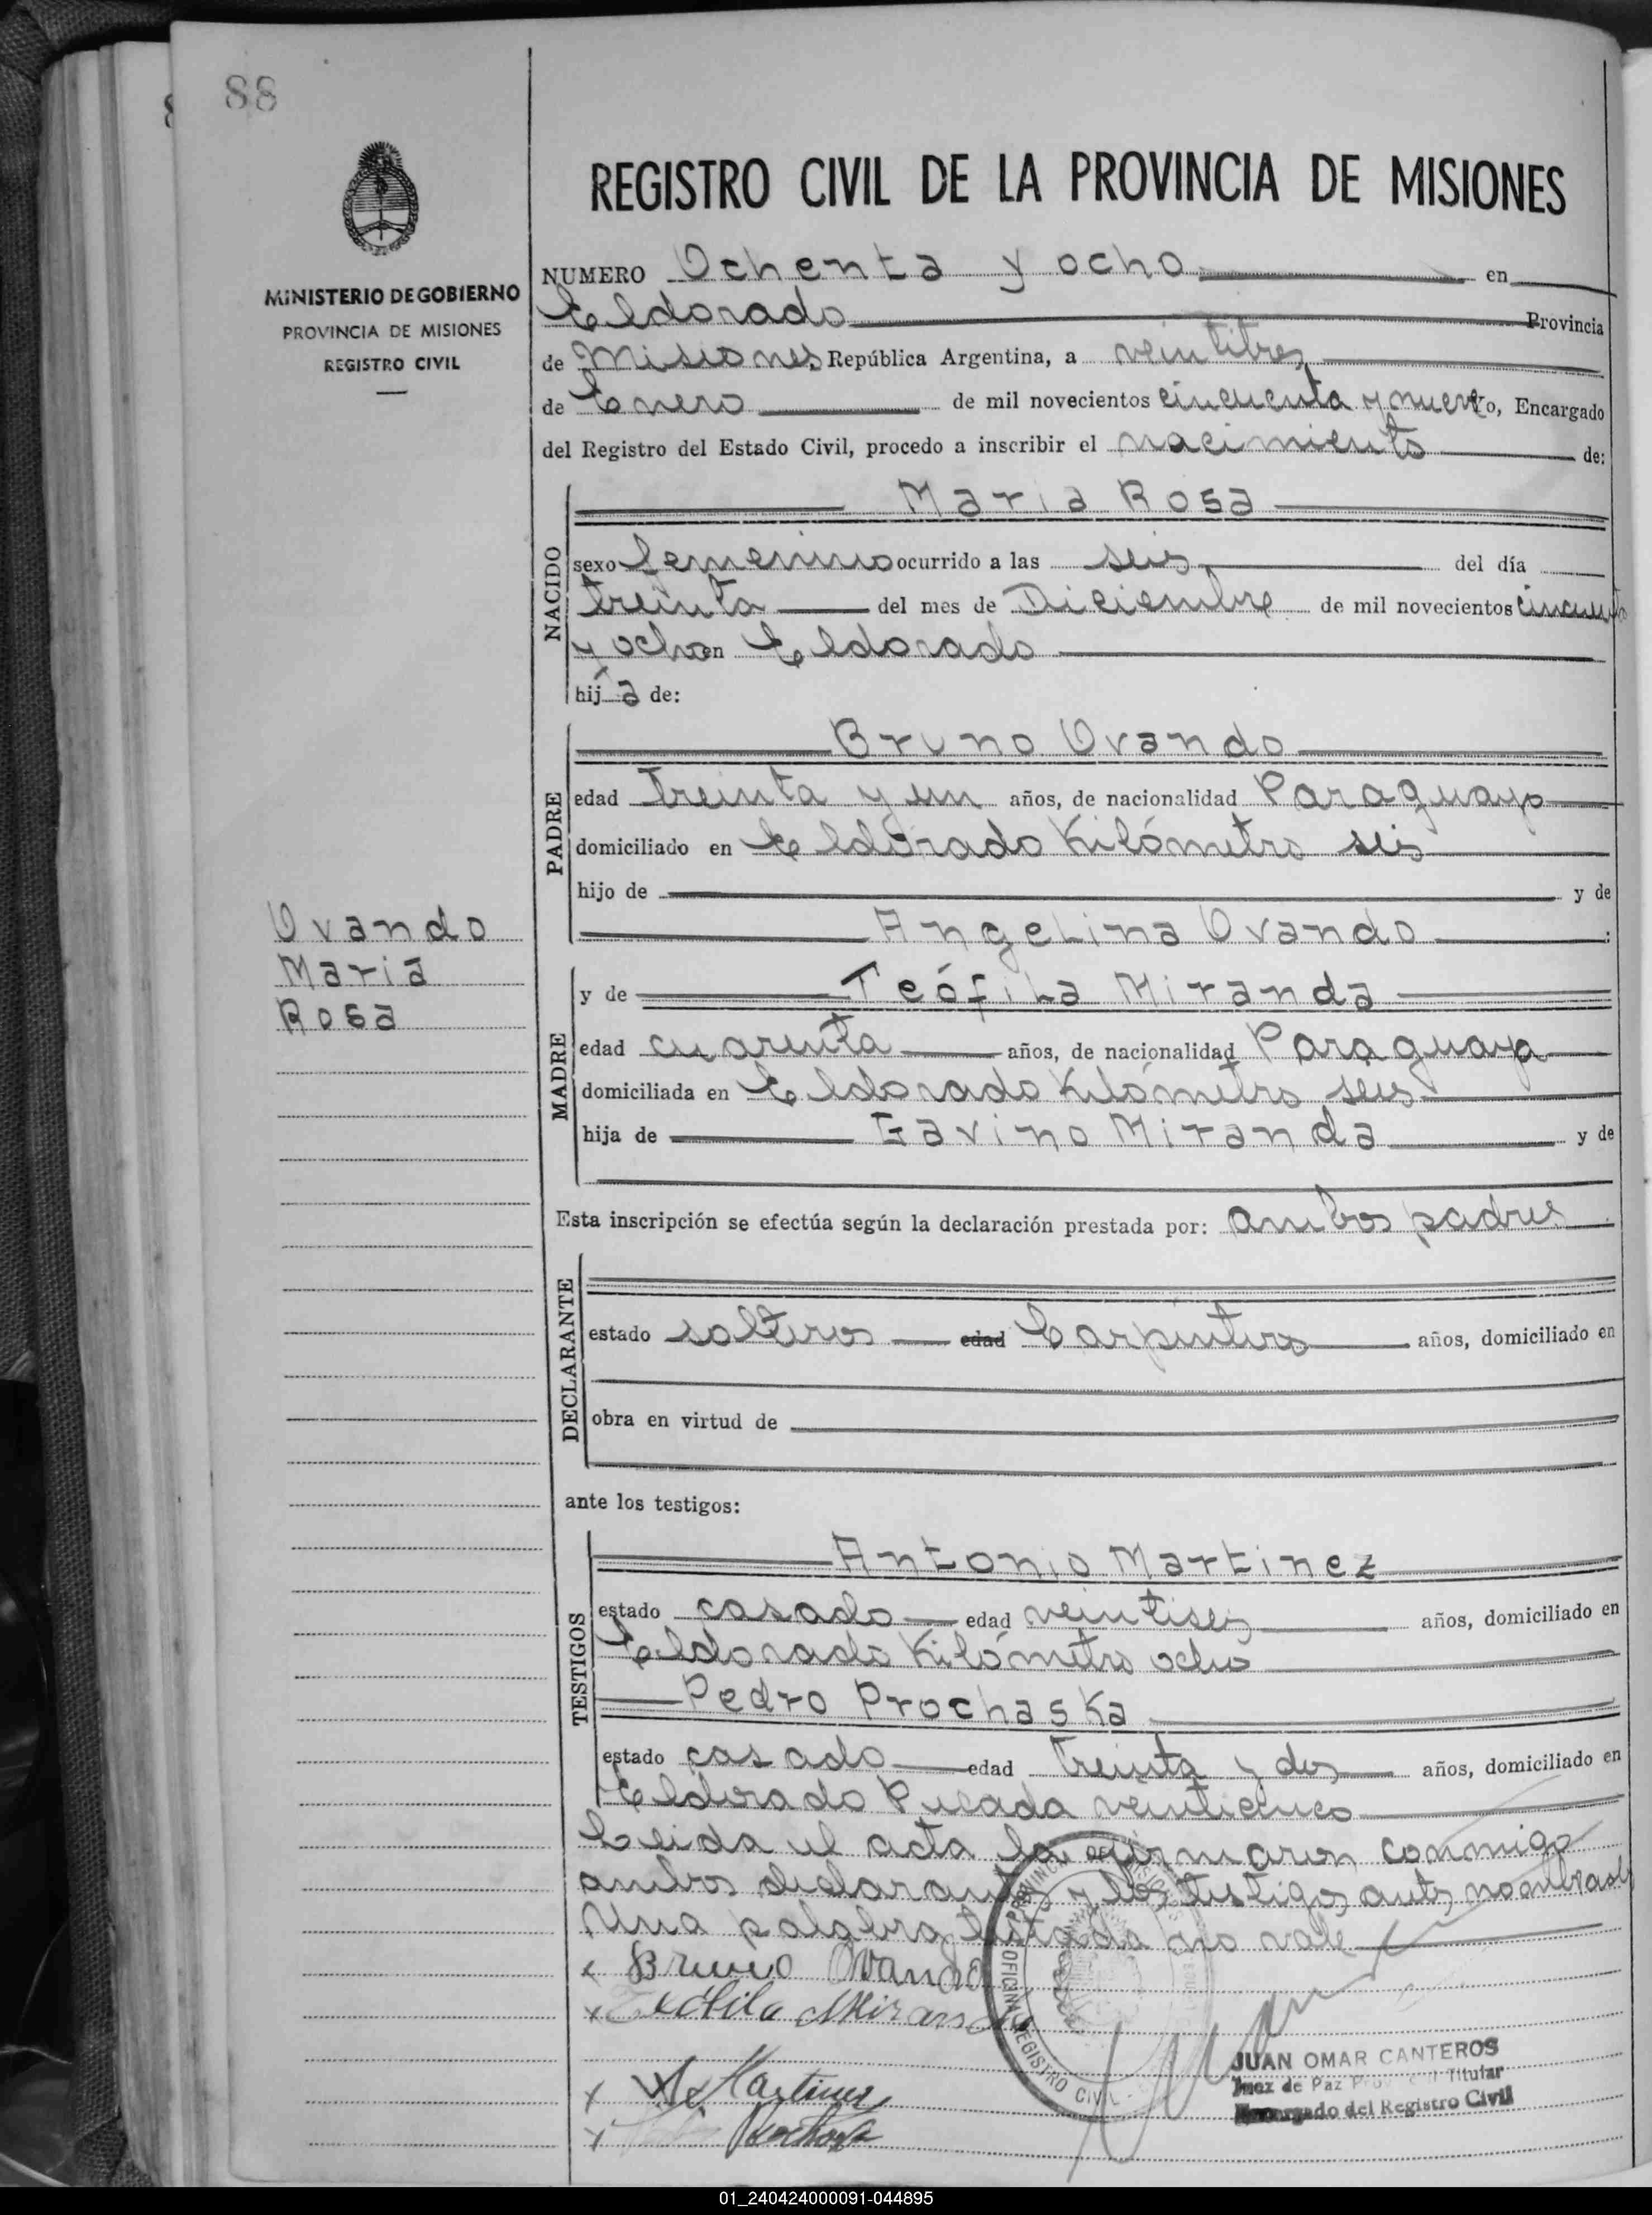 88
REGISTRO CIVIL DE LA PROVINCIA DE MISIONES
MINISTERIO DE GOBIERNO
PROVINCIA DE MISIONES
REGISTRO CIVIL
NUMERO Ochenta y ocho en
Eldorado Provincia
de Misiones, República Argentina, a veintitres
de Enero de mil novecientos cincuenta y nueve Yo, Encargado
del Registro del Estado Civil, procedo a inscribir el nacimiento de:
NACIDO
Maria Rosa
sexo femenino ocurrido a las seis del día
treinta del mes de Diciembre de mil novecientos cincuenta
y ocho en Eldorado
hija de:
PADRE
Bruno Ovando
edad treinta y un años, de nacionalidad Paraguayo
domiciliado en Eldorado Kilómetro seis
hijo de y de
Angelina Ovando :
Ovando
Maria
Rosa
MADRE
y de Teófila Miranda
edad cuarenta años, de nacionalidad Paraguaya
domiciliada en Eldorado Kilómetro seis
hija de Gavino Miranda y de
Esta inscripción se efectúa según la declaración prestada por: ambos padres
DECLARANTE
estado solteros edad Carpintero años, domiciliado en
obra en virtud de
ante los testigos:
TESTIGOS
Antonio Martinez
estado casado edad veintiseis años, domiciliado en
Eldorado Kilómetro ocho
Pedro Prochaska
estado casado edad treinta y dos años, domiciliado en
Eldorado Picada veinticinco
Leida el acta la firmaron conmigo
ambos declarantes y los testigos antes nombrados
Una palabra testada no vale
x Bruno Ovando
x Teófila Miranda
x A. Martinez
x Prochaska
PROVINCIA DE MISIONES
OFICINA REGISTRO CIVIL
JUAN OMAR CANTEROS
Juez de Paz Titular
Encargado del Registro Civil
01_240424000091-044895